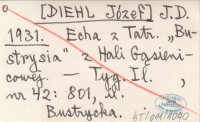 [DIEHL Józef] J.D.
1931. Echa z Tatr. „Bu-
strysia” z Hali Gąsieni-
cowej. — Tyg. Il.,
nr 42: 801, il.
Bustrycka.